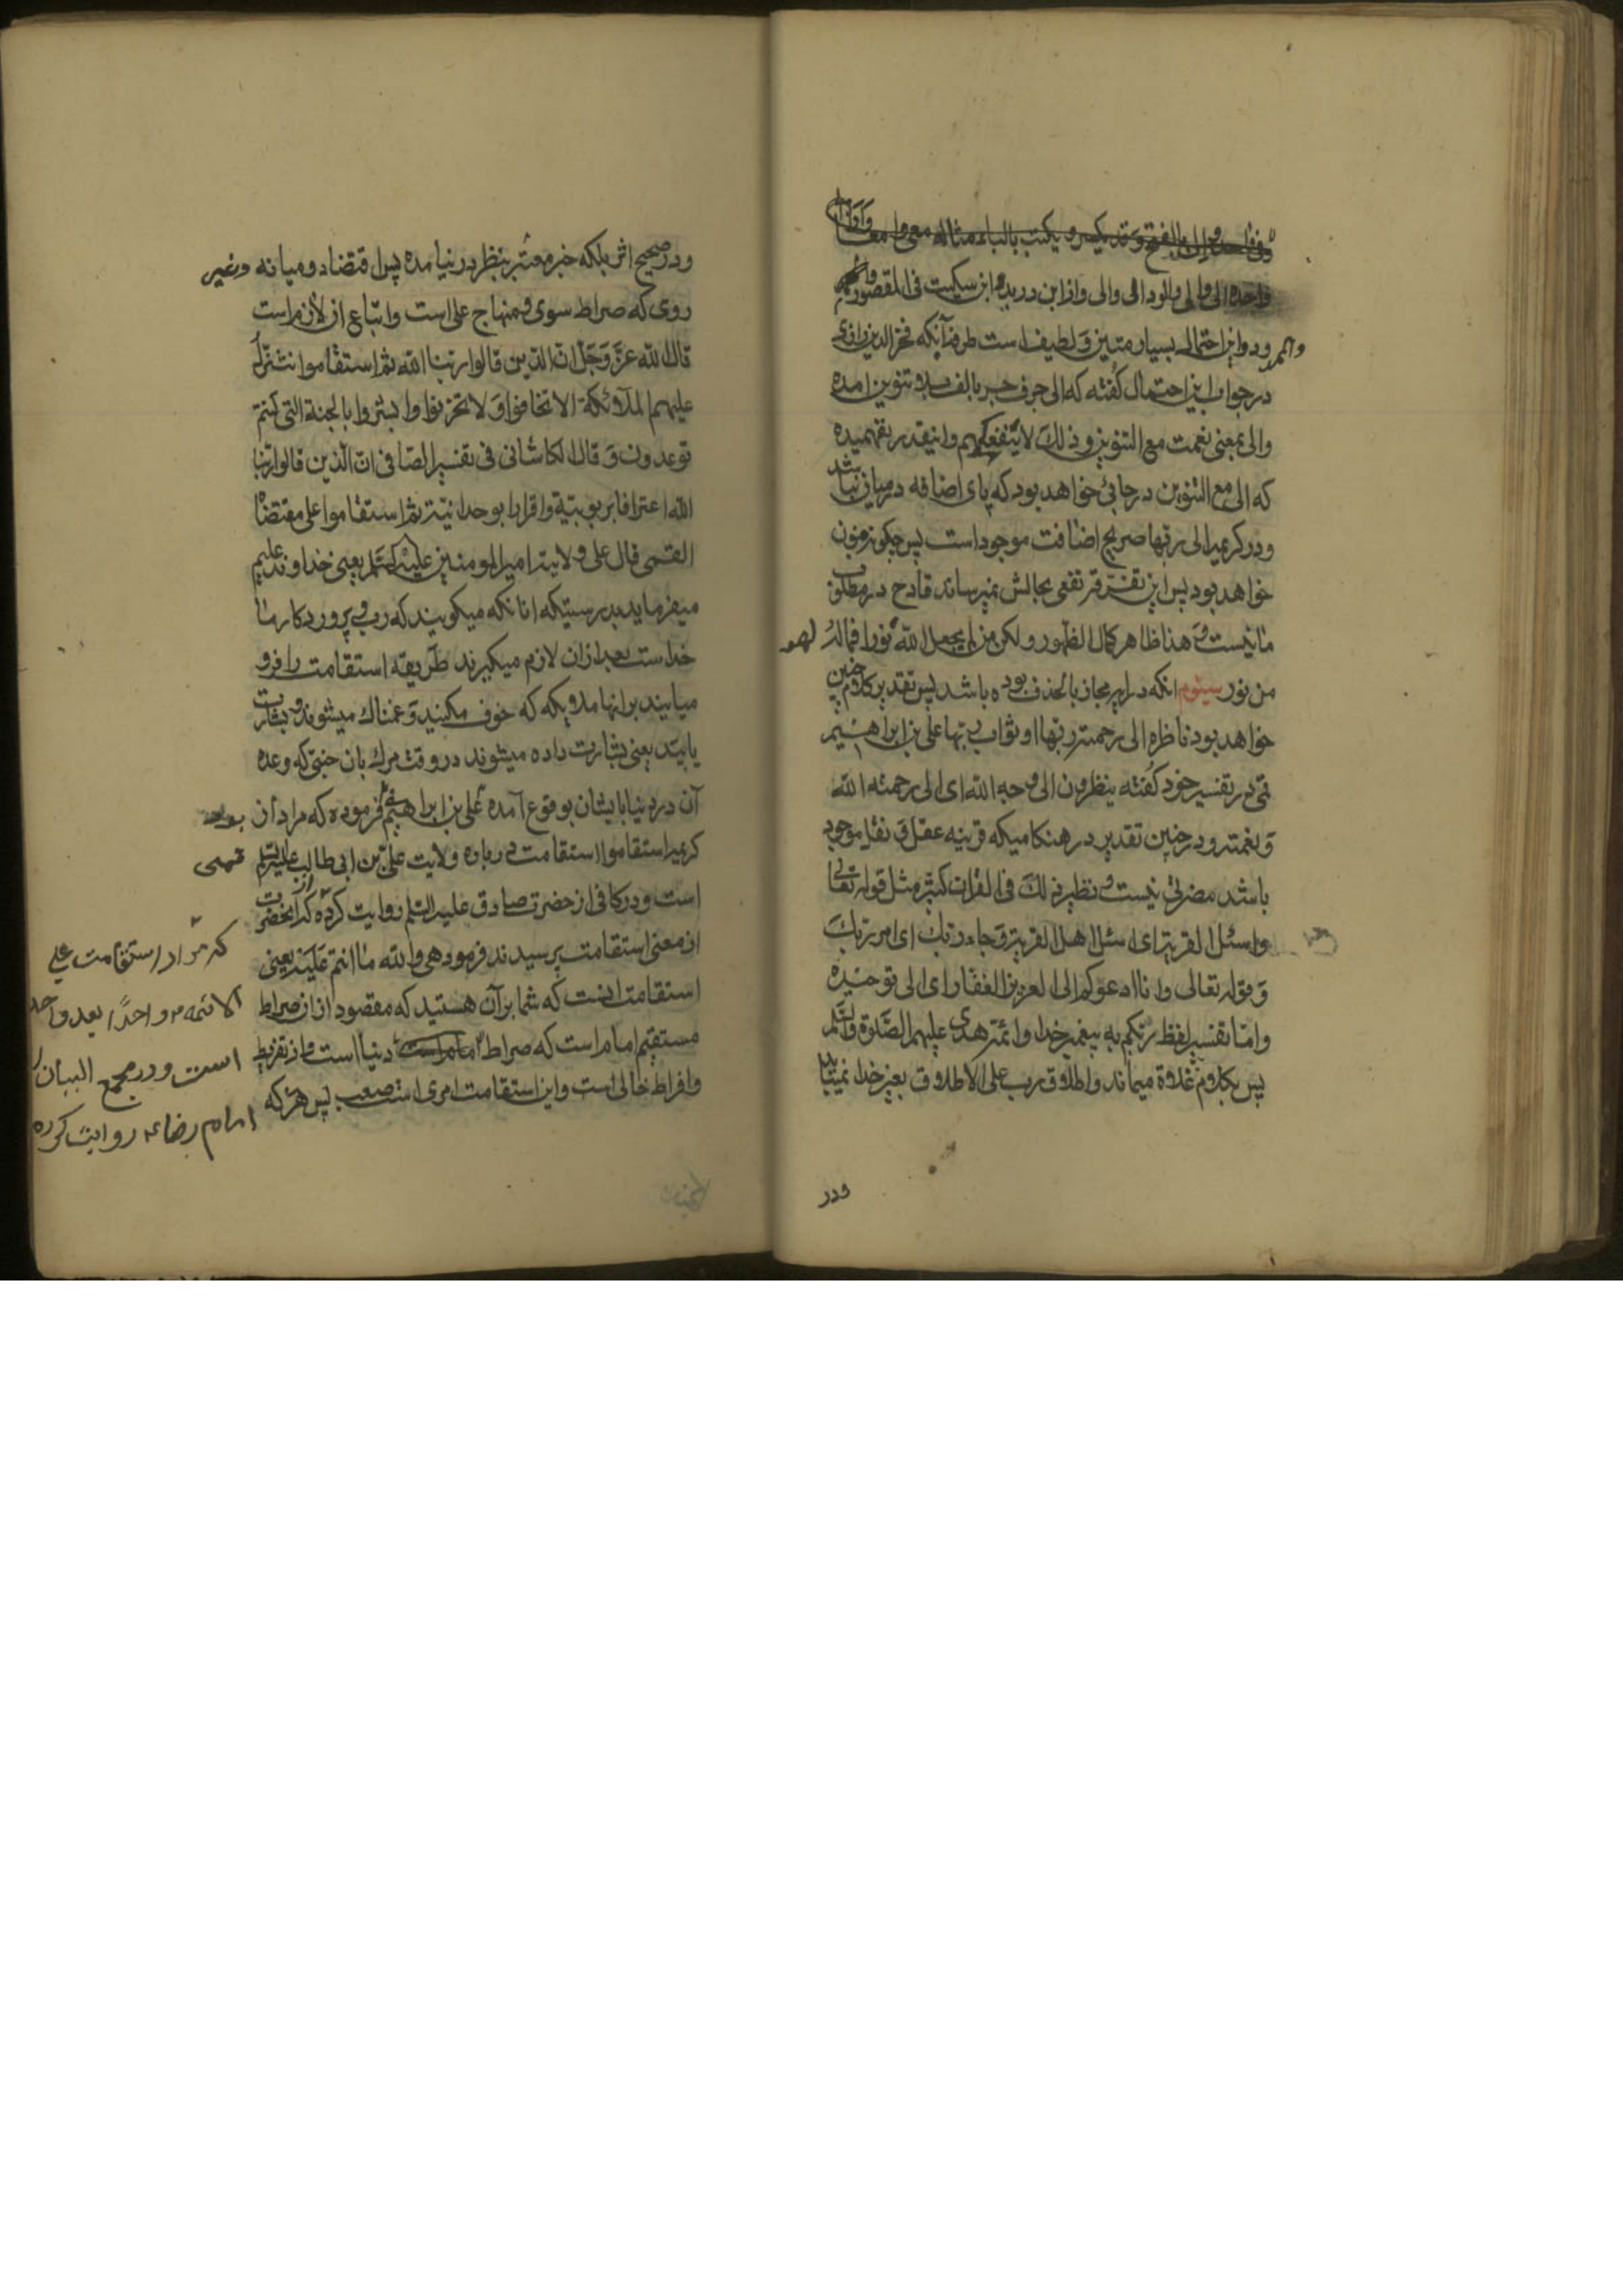 وفقا حد الی بالفتح و قد یکسر و یکتب بالیاء مثاله معی و امعا
واحده الی و الی و الو و الی والی و از ابن درید و ابن سکیت فی المقصور و
الممدود و این احتمال بسیار متین و لطیف است طرفه آنکه فخر الدین رازی
در جواب این احتمال گفته که الی حرف جر بالف بلا تنوین امده
والی بمعنی نعمت مع التنوین و ذلک لا ینفعکم و اینقدر نفهمیده
که الی مع التنوین در جائی خواهد بود که پای اضافه در میان نباشد
و در کریمه الی ربها صریح اضافت موجود است پس چگونه منون
خواهد بود پس این نفعی بحالش نمیرساند قادح در مطلوب
ما نیست و هذا ظاهر کمال الظهور و لکن من لم یجعل الله له نورا فما له
من نور سیوم انکه در اینجا مجاز بالحذف بوده باشد پس تقدیر کلام چنین
خواهد بود ناظره الی رحمة ربها او ثواب ربها علی بن ابراهیم
قمی در تفسیر خود گفته ینظرون الی وجه الله ای الی رحمته الله
و نعمته و در چنین تقدیر در هنکامیکه قرینه عقل و نقل موجود
باشد مضرتی نیست و نظیر ذلک فی القران کثیر مثل قوله تعالی
واسئل القریة ای اسئل اهل القریة و جاء ربک ای امر ربک
و قوله تعالی و انا ادعوکم الی العزیز الغفار ای الی توحیده
و امّا تفسیر لفظ ربکم به پیغمبر خدا و ائمه هدی علیهم الصلوة والسلم
پس بکلام غلاة میماند و اطلاق رب علی الاطلاق بغیر خدا نمیشاید
ودر
ودر صحیح اثر بلکه خبر معتبر بنظر در نیامده پس اقتضاد و میانه و غیر
روی که صراط سوی و منهاج علی است و اتباع ان لازم است
قال الله عزّ و جلّ انّ الّذین قالوا ربنا الله ثم استقاموا تتنزل
علیهم الملائکة الا تخافوا و لا تحزنوا و ابشروا بالجنة التی کنتم
توعدون و قال الکاشانی فی تفسیر الصّافی انّ الّذین قالوا ربنا
الله اعترافا بربوبیّة و اقرارا بوحدانیّته ثم استقاموا علی مقتضاه
القمی قال علی ولایة امیر المومنین علیه السّلم یعنی خداوند علیم
میفرماید بدرستیکه انانکه میکویند که رب و پروردکار ما
خداست بعد ازان لازم میکیرند طریقه استقامت را فرو
میایند بر انها ملائکه که خوف مکنید و غمناک میشوند و بشارت
یابید یعنی بشارت داده میشوند در وقت مرک بان جنتی که وعده
آن در دنیا بایشان بوقوع آمده علی بن ابراهیم فرموده که مراد از
کریمه استقاموا استقامت در باره ولایت علیّ بن ابی طالب علیه السّلم
است و در کافی از حضرت صادق علیه السّلم روایت کرده که از انحضرت
از معنی استقامت پرسیدند فرمود هی والله ما انتم علیه یعنی
استقامت اینست که شما بر آن هستید که مقصود از ان صراط
مستقیم امام است که صراط دنیا است و از تفریط
و افراط خالی است و این استقامت امری است صعب پس هر که
قمی
که مراد استقامت علی
الائمه واحدًا بعد واحد
است و در مجمع البیان از
امام رضا ع روایت کرده